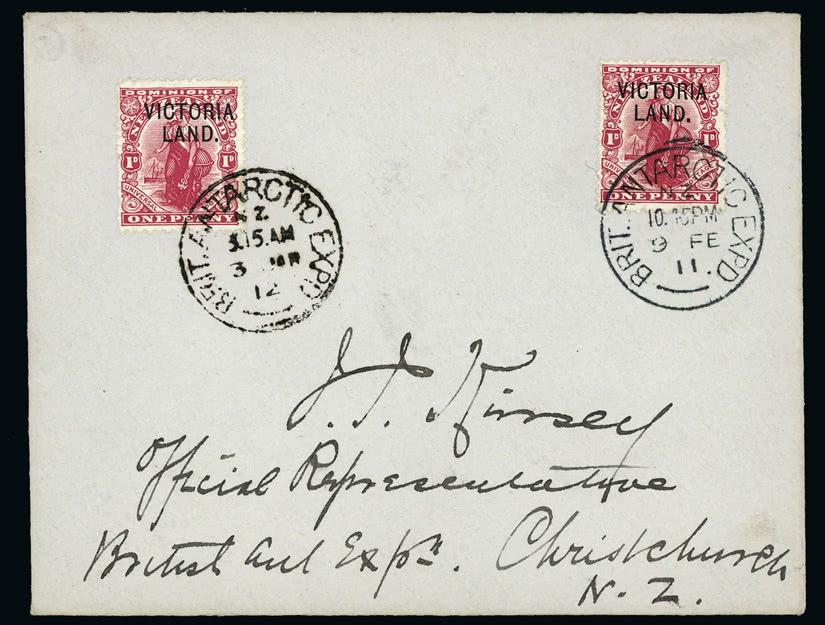 DOMINION OF
NEW ZEALAND
VICTORIA
LAND.
1D 1D
UNIVERSAL POSTAGE
ONE PENNY
DOMINION OF
NEW ZEALAND
VICTORIA
LAND.
1D 1D
UNIVERSAL POSTAGE
ONE PENNY
BRIT. ANTARCTIC EXPD
N.Z.
3.15.AM
3 MR
12
BRIT. ANTARCTIC EXPD
N.Z.
10.45PM
9 FE
11.
J. J. Kinsey
Official Representative
British Ant Expn. Christchurch
N. Z.